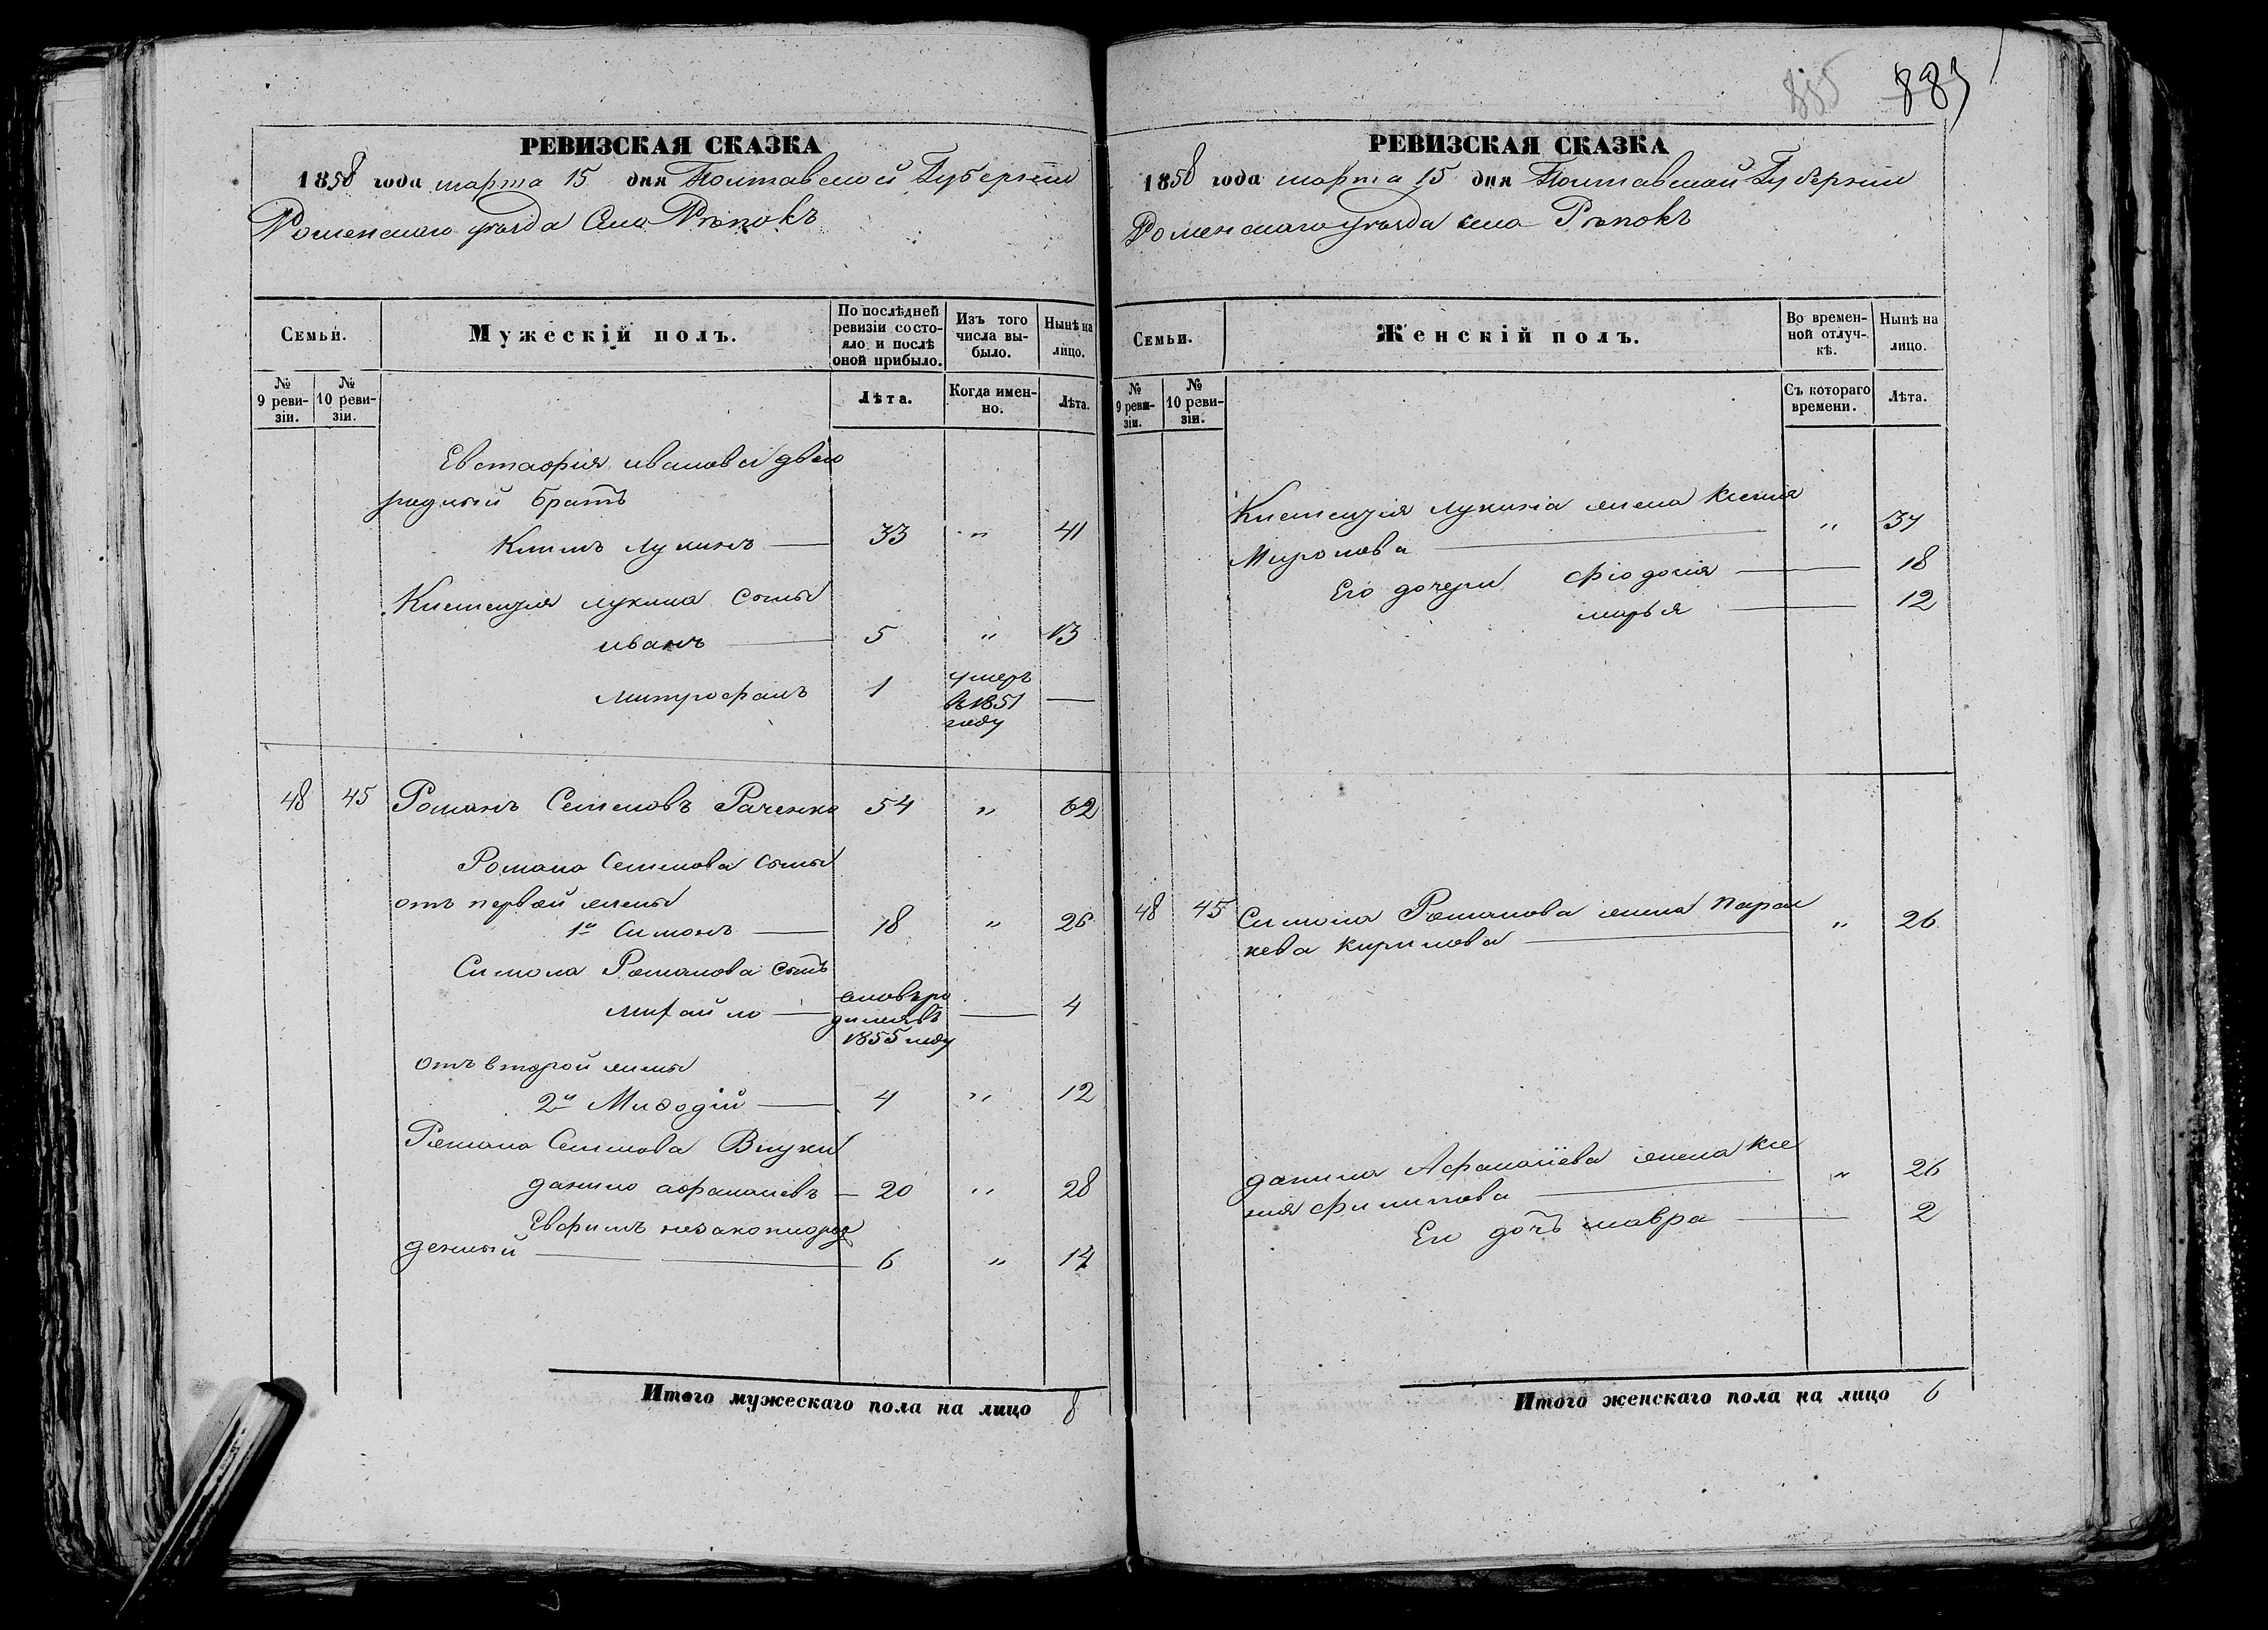 РЕВИЗСКАЯ СКАЗКА
1858 года марта 15 дня Полтавской Губернии
Роменского уезда Села Рѣпокъ
Семьи.
Мужескій полъ.
По послѣдней ревизіи состояло и послѣ оной прибыло.
Изъ того числа выбыло.
Нынѣ на лицо.
№ 9 ревизіи.
№ 10 ревизіи.
Лѣта.
Когда именно.
Лѣта.
Евстафия иванова двою
родный братъ
Климъ лукинъ 33 " 41
лукина сыны
иванъ 5 " 13
митрофанъ 1 умеръ
въ 1851
году
48 45 Романъ Семеновъ Раченко 54 " 62
Романа Семенова сыны
отъ первой жены
1й Симонъ 18 " 26
Симона Романова сынъ
михайло вновь ро
дился въ
1855 году 4
отъ второй жены
2й Мифодій 4 " 12
Романа Семенова Внуки
данило афанасиевъ 20 " 28
Евфимъ незаконнорож
денный 6 " 14
Итого мужескаго пола на лицо 8
885 885
РЕВИЗСКАЯ СКАЗКА
1858 года марта 15 дня Полтавской Губернии
Роменского уезда села Рѣпокъ
Семьи.
Женскій полъ.
Во временной отлучкѣ.
Нынѣ на лицо.
№ 9 ревизіи.
№ 10 ревизіи.
Съ котораго времени.
Лѣта.
лукина жена Ксения
Миронова " 37
Его дочери фіодосия 18
марья 12
48 45 Симона Романова жена Парас
кева кирилова " 26
данила Афанасіева жена Ксе
ния филипова " 26
Его дочь мавра 2
Итого женскаго пола на лицо 6